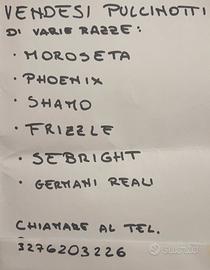 VENDESI PULCINOTTI
DI VARIE RAZZE:
• MOROSETA
• PHOENIX
• SHAMO
• FRIZZLE
• SEBRIGHT
• GERMANI REALI
CHIAMARE AL TEL.
3276203226
subito